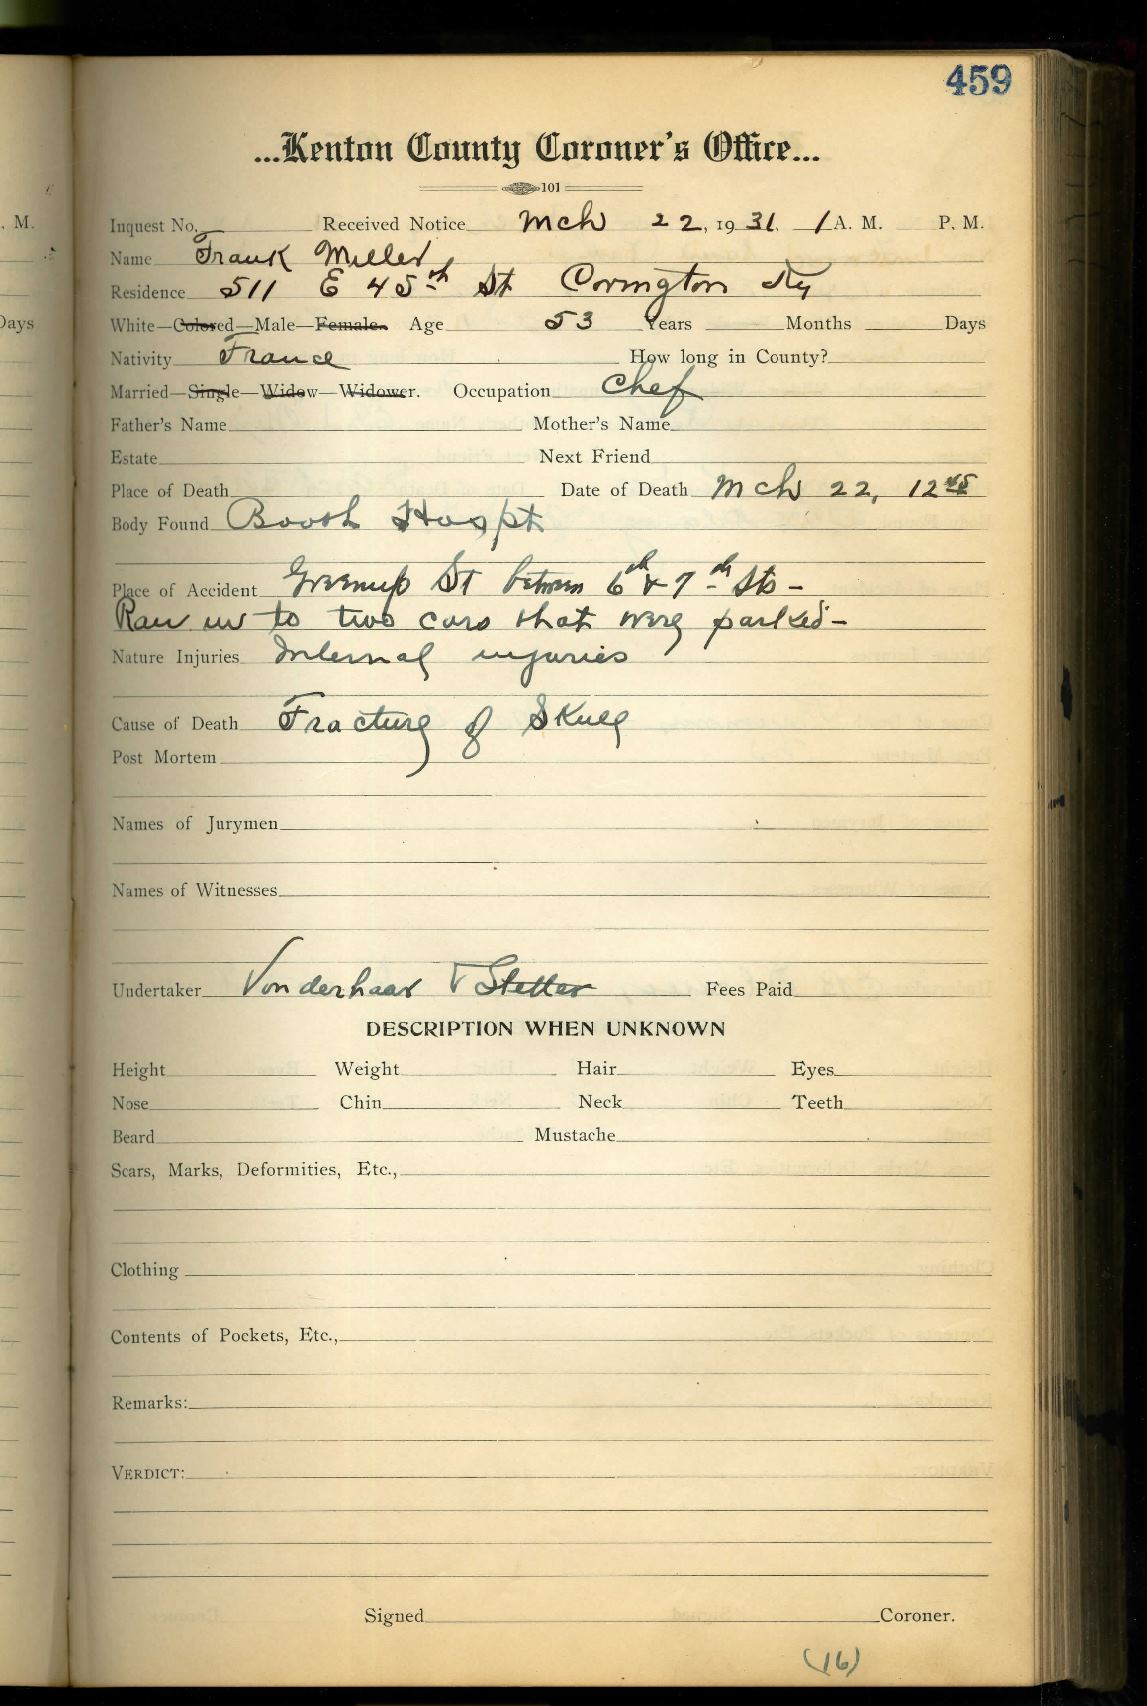 459
...Kenton County Coroner's Office...
101
Inquest No. Received Notice Mch 22, 1931, 1 A. M. P. M.
Name Frank Miller
Residence 511 E 45th St Covington Ky
White—Colored—Male—Female. Age 53 Years Months Days
Nativity France How long in County?
Married—Single—Widow—Widower. Occupation Chef
Father's Name Mother's Name
Estate Next Friend
Place of Death Date of Death Mch 22, 12 45
Body Found Booth Hospt
Place of Accident Greenup St between 6th & 7th Sts -
Ran in to two cars that were parked -
Nature Injuries Internal injuries
Cause of Death Fracture of Skull
Post Mortem
Names of Jurymen
Names of Witnesses
Undertaker Vonderhaar & Stetter Fees Paid
DESCRIPTION WHEN UNKNOWN
Height Weight Hair Eyes
Nose Chin Neck Teeth
Beard Mustache
Scars, Marks, Deformities, Etc.,
Clothing
Contents of Pockets, Etc.,
Remarks:
VERDICT:
Signed Coroner.
(16)
. M.
Days